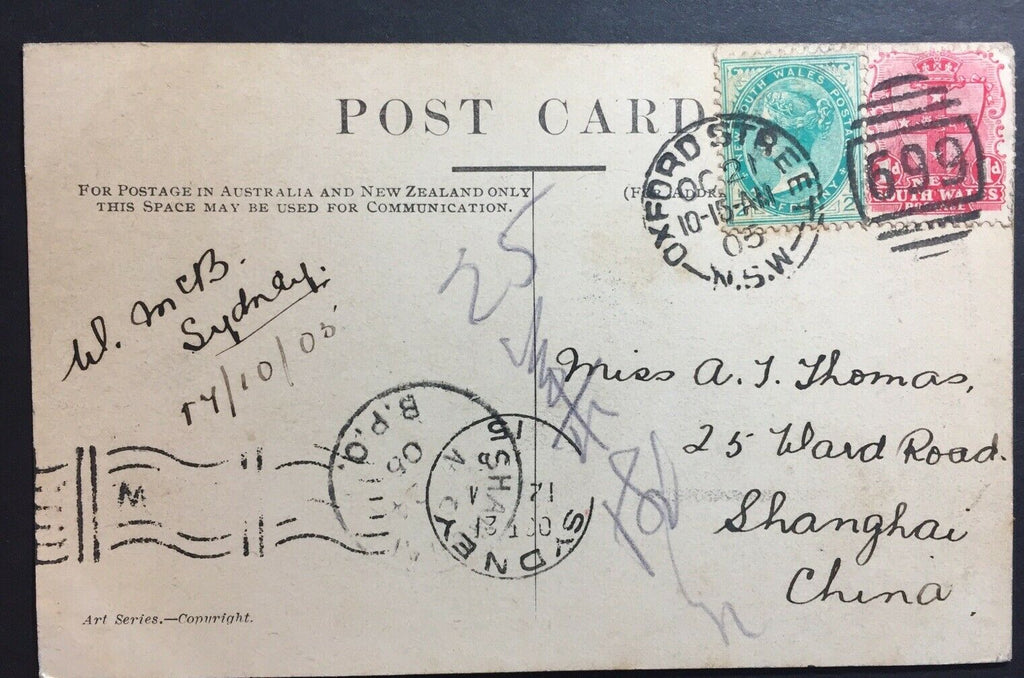 POST CARD
FOR POSTAGE IN AUSTRALIA AND NEW ZEALAND ONLY
THIS SPACE MAY BE USED FOR COMMUNICATION.
SOUTH WALES POSTAGE
OXFORD STREET
OC 21
10-15-AM
05
N.S.W
699
SOUTH WALES
W. McB.
Sydney.
17/10/05
25
Miss A. J. Thomas,
25 Ward Road.
Shanghai
China
B.P.O.
SHA
SYDNEY
OCT 21
12
Art Series.—Copyright.